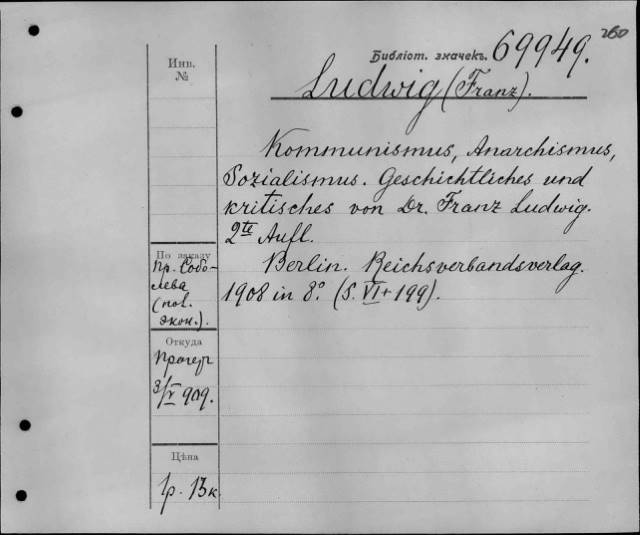 260
Библіот. значекъ. 69949.
Инв.
№
Ludwig (Franz).
Kommunismus, Anarchismus,
Sozialismus. Geschichtliches und
kritisches von Dr. Franz Ludwig.
2te Aufl.
Berlin. Reichsverbandsverlag.
1908 in 8.° (S. VI + 199).
По заказу
Пр. Собо-
лева
(пол.
экон.).
Откуда
3/V 909.
Цѣна
1р. 13к